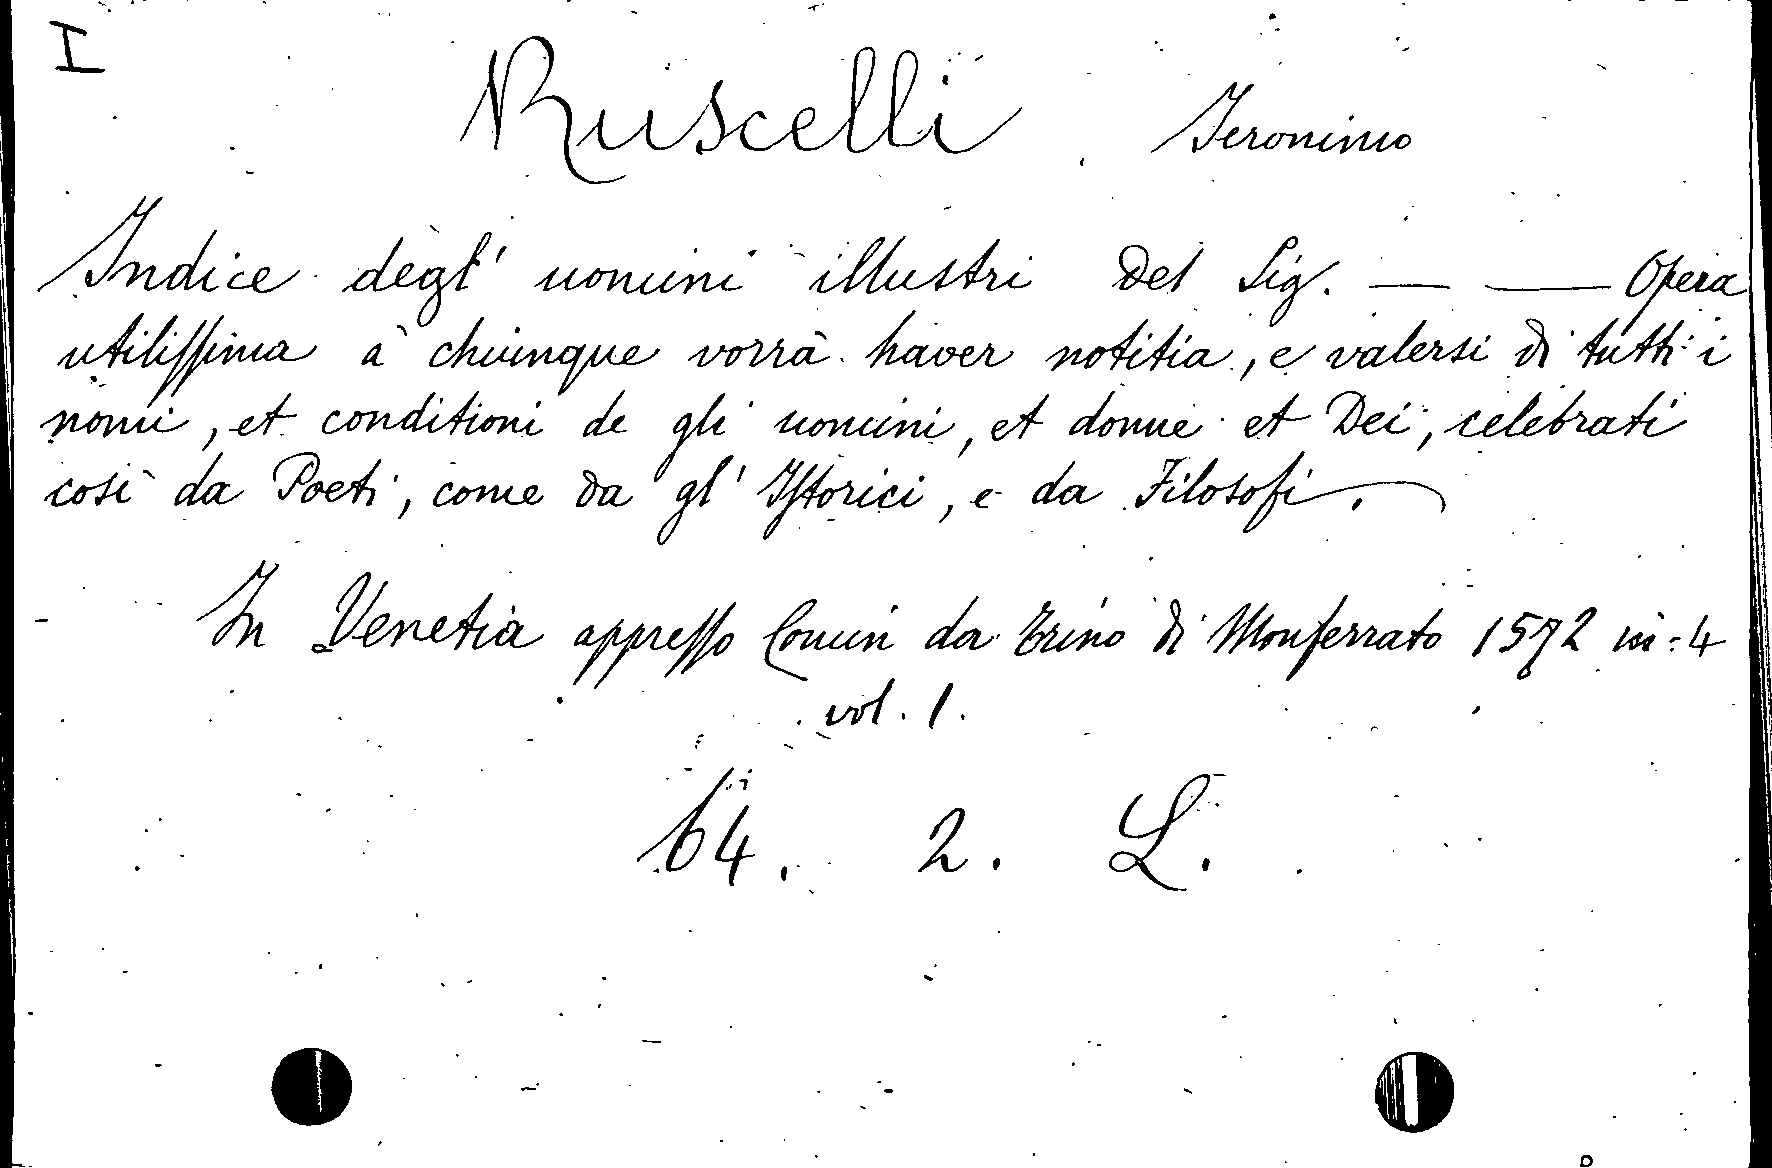 I
Ruscelli Jeronimo
Indice degl' uomini illustri Del Sig. — — Opera
utilissima à chiunque vorrà haver notitia, e valersi di tutti i
nomi, et conditioni de gli uomini, et donne et Dei, celebrati
così da Poeti, come da gl' Istorici, e da Filosofi.
In Venetia appresso Comin da Trino di Monferrato 1572 in-4
vol. 1.
64. 2. L.